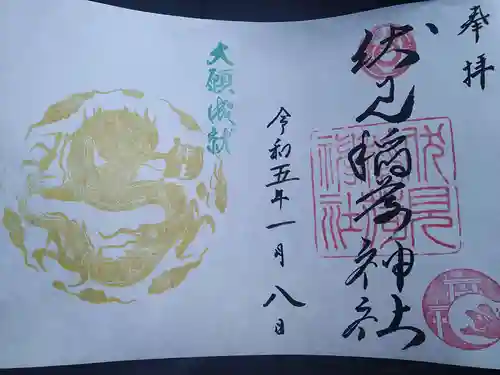 奉拝
伏見稲荷神社
伏見稲荷神社
令和五年一月八日
大願成就